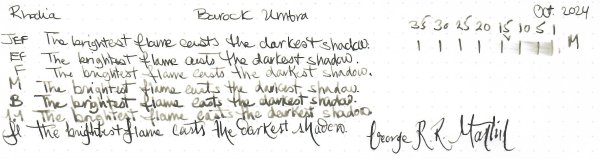 Rhodia Barock Umbra Oct. 2024
35 30 25 20 15 10 5 1
M
JEF The brightest flame casts the darkest shadow.
EF The brightest flame casts the darkest shadow.
F The brightest flame casts the darkest shadow.
M The brightest flame casts the darkest shadow.
B The brightest flame casts the darkest shadow.
The brightest flame casts the darkest shadow.
fl the brightest flame casts the darkest shadow. George R. R. Martin